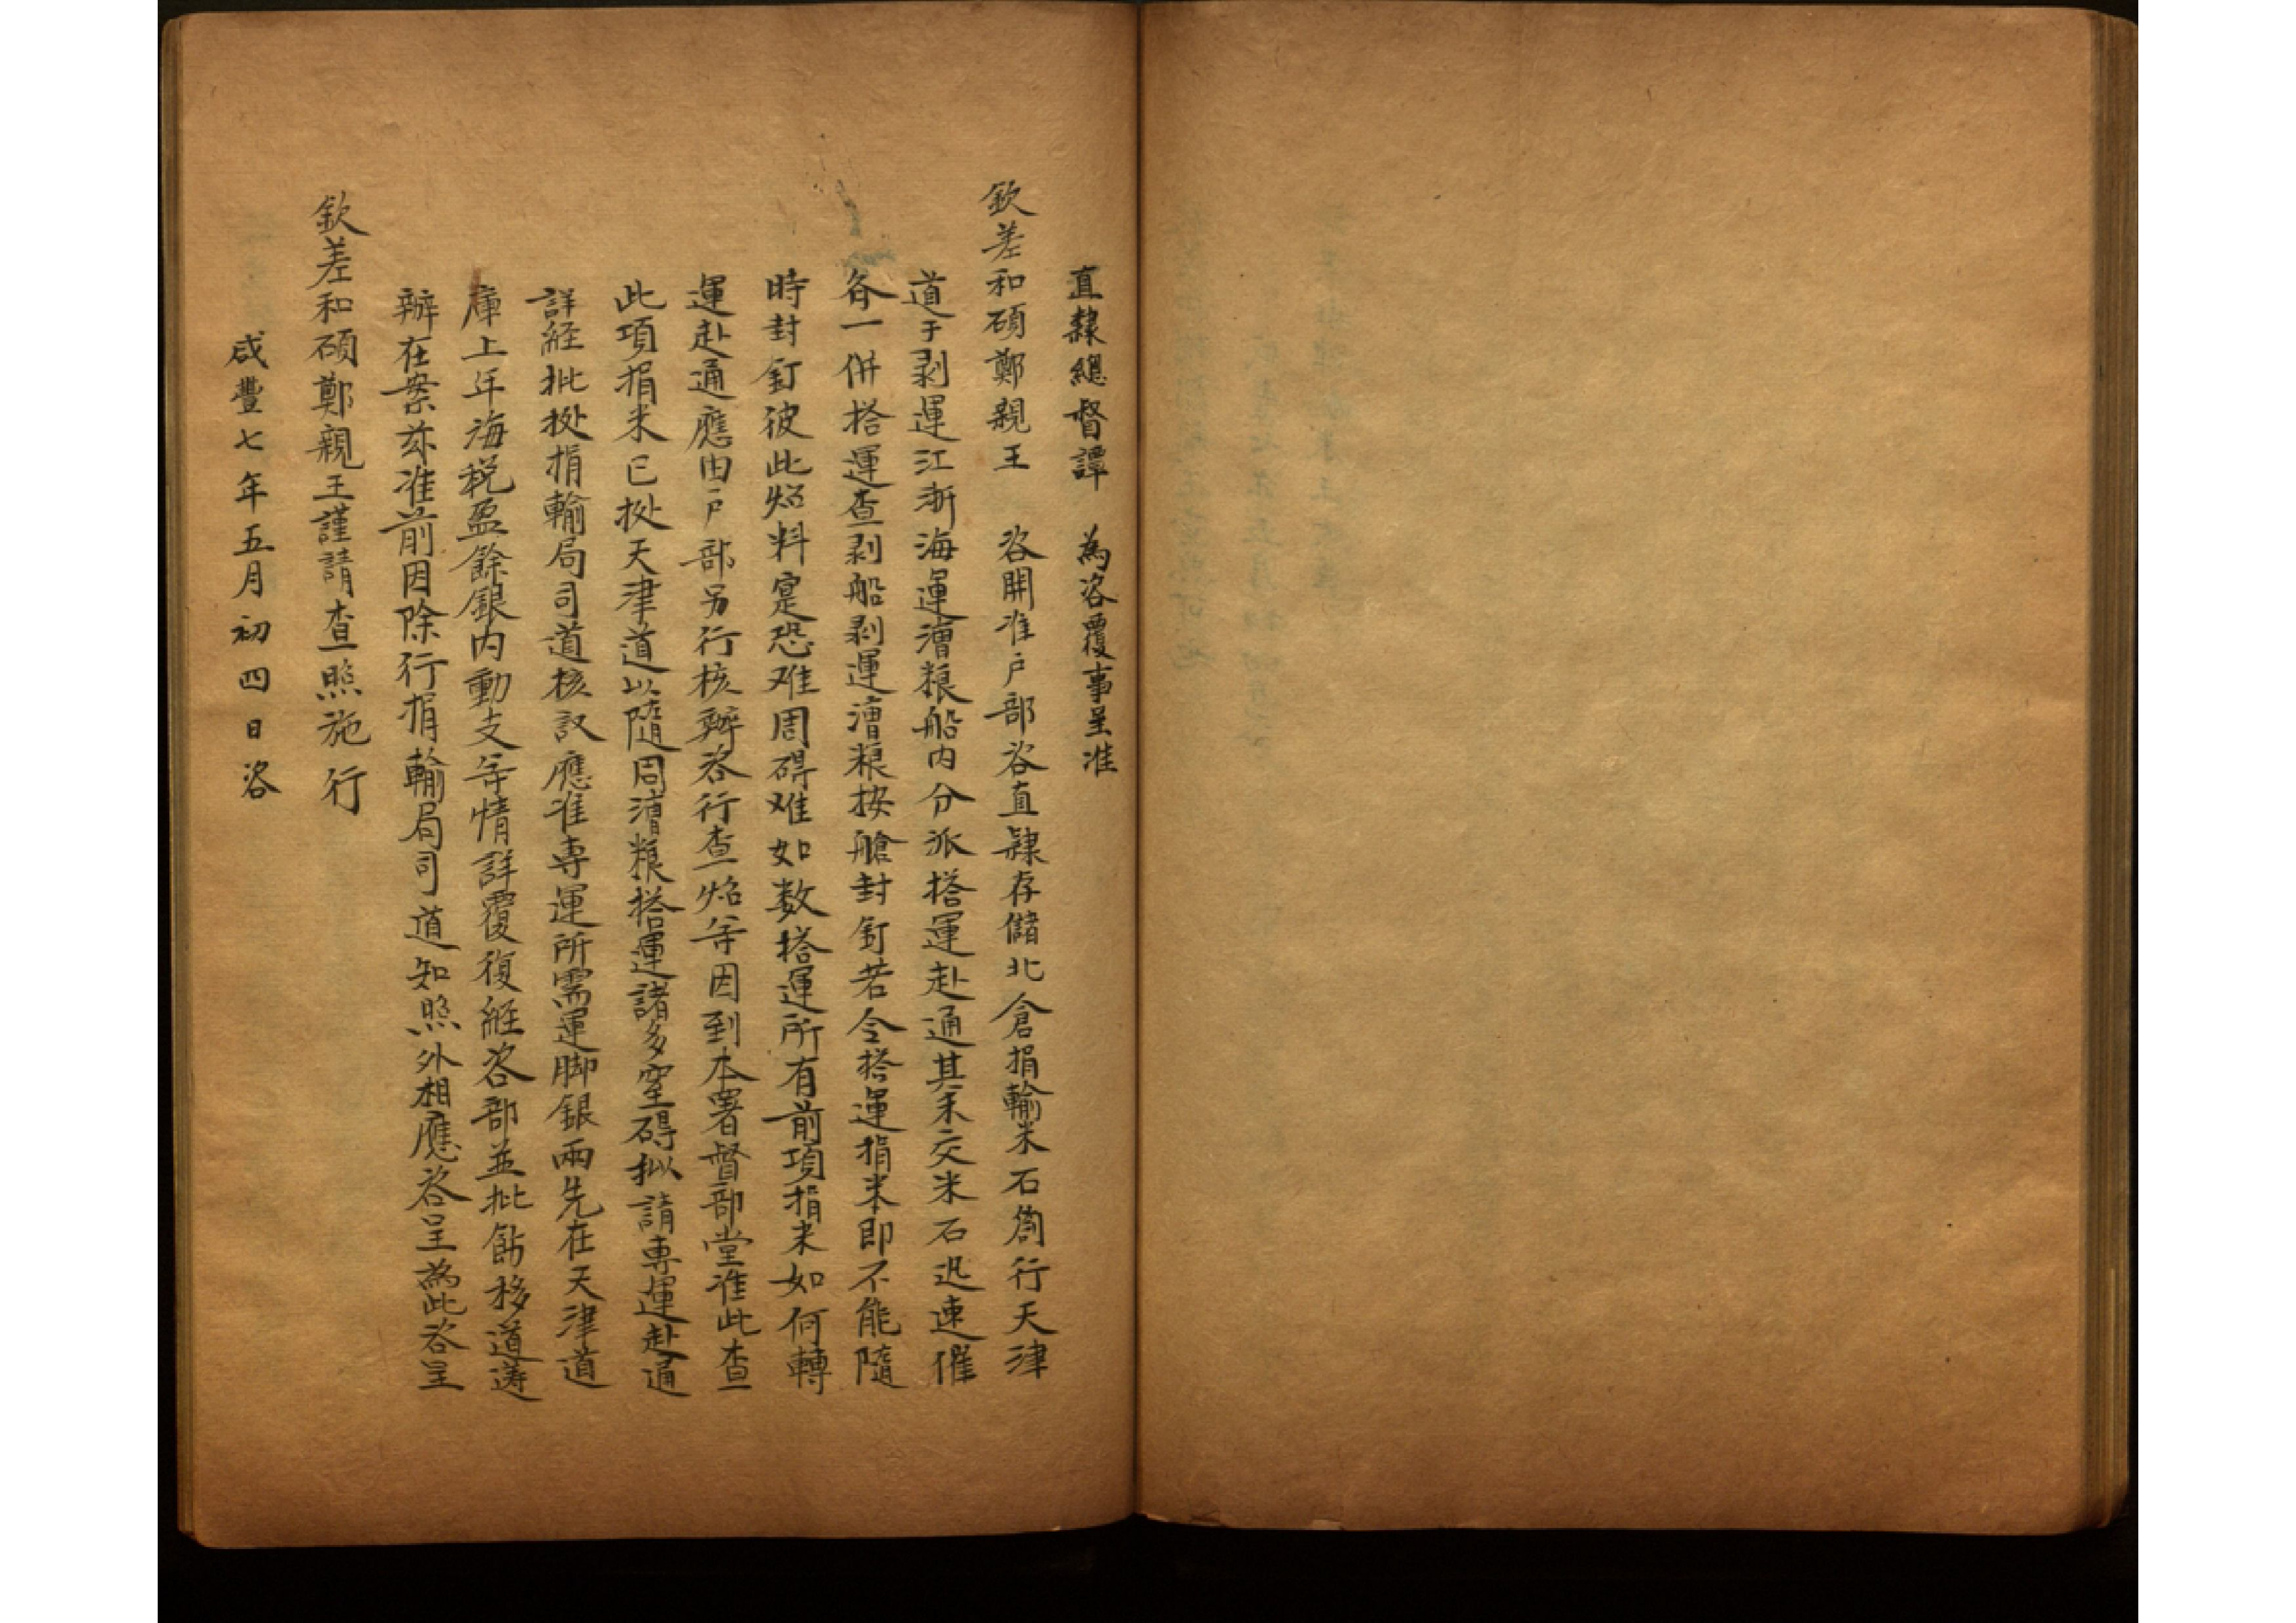 直隸總督譚　為咨覆事呈准
欽差和碩鄭親王　咨開准户部咨直隸存儲北倉捐輸米石劄行天津
道于剥運江浙海運漕粮船内分派搭運赴通其未交米石迅速催
各一併搭運查剥船剥運漕粮按艙封釘若令搭運捐米即不能隨
時封釘彼此照料寔恐难周碍难如数搭運所有前項捐米如何轉
運赴通應由户部另行核辦咨行查照等因到本署督部堂准此查
此項捐米已㨿天津道以隨同漕粮搭運諸多窒碍拟請專運赴通
詳經批㨿捐輸局司道核議應准專運所需運脚銀兩先在天津道
庫上年海税盈餘銀内動支等情詳覆復經咨部並批飭移道遵
辦在案茲准前因除行捐輸局司道知照外相應咨呈為此咨呈
欽差和碩鄭親王謹請查照施行
咸豐七年五月初四日咨